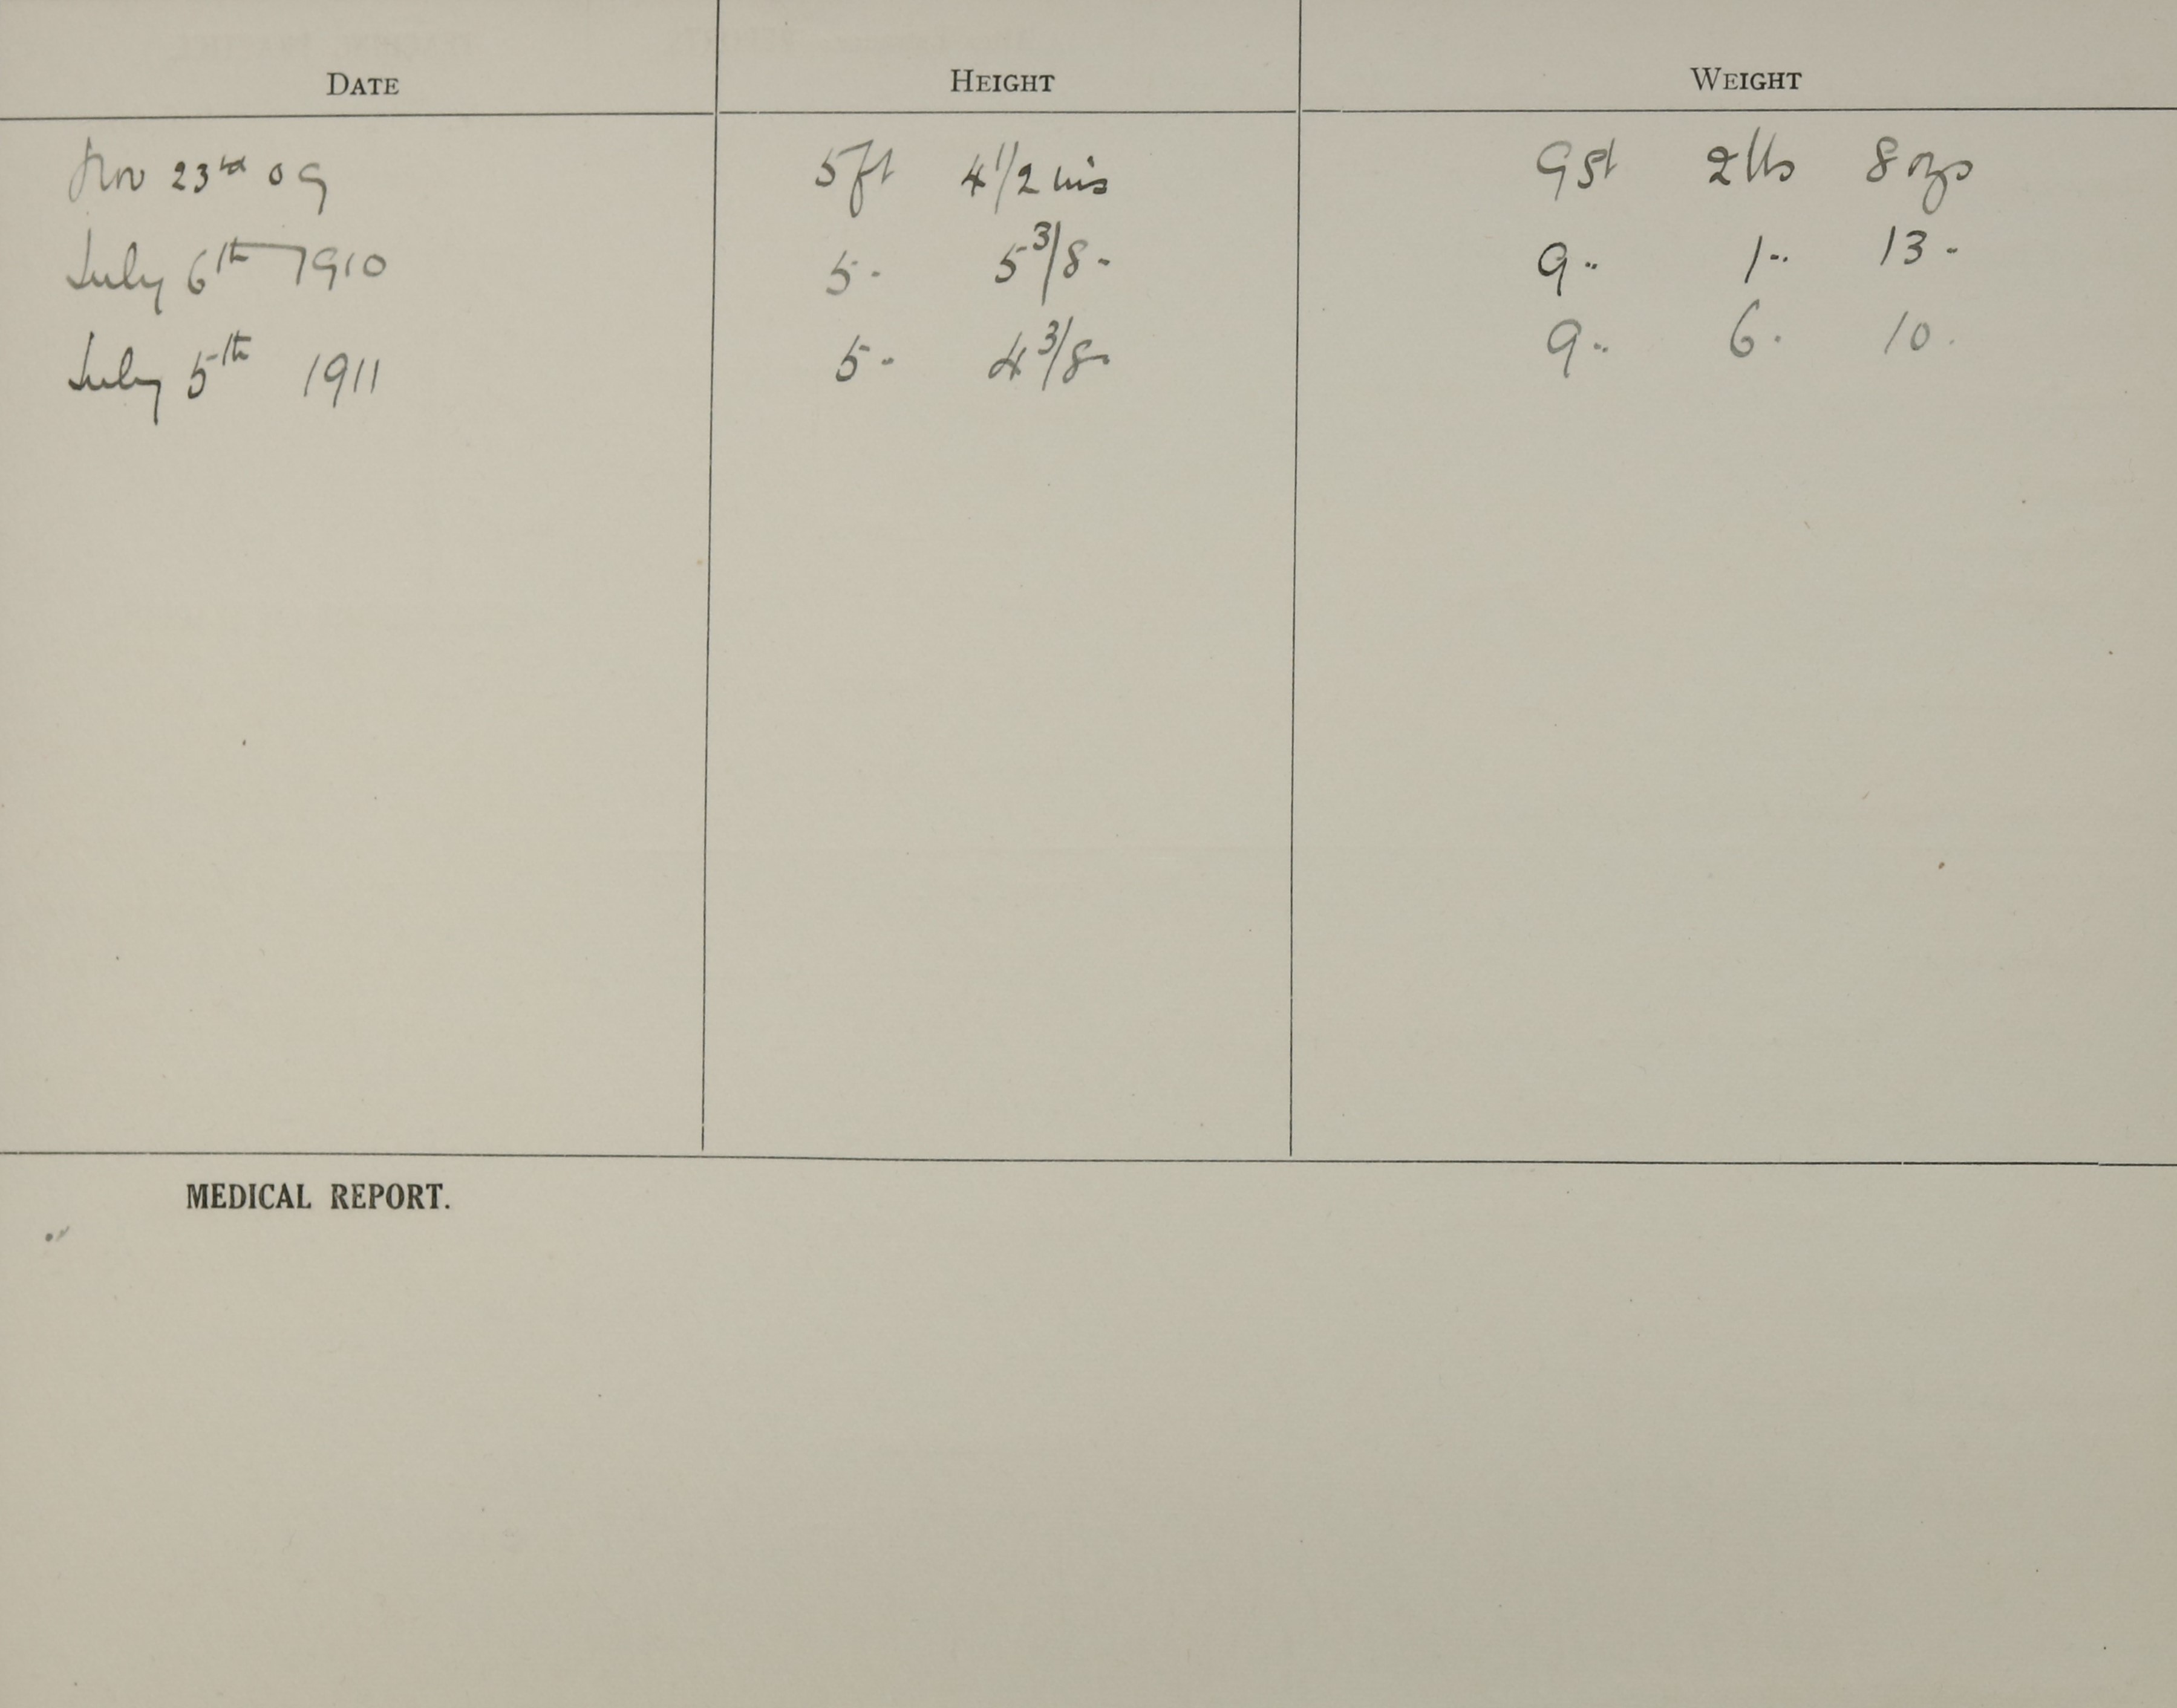 DATE HEIGHT WEIGHT
Nov 23rd 09 5ft 4 1/2 ins 9st 2lbs 8ozs
July 6th 1910 5 - 5 3/8 - 9 .. 1 .. 13 -
July 5th 1911 5 - 4 3/8 - 9 .. 6 . 10 .
MEDICAL REPORT.